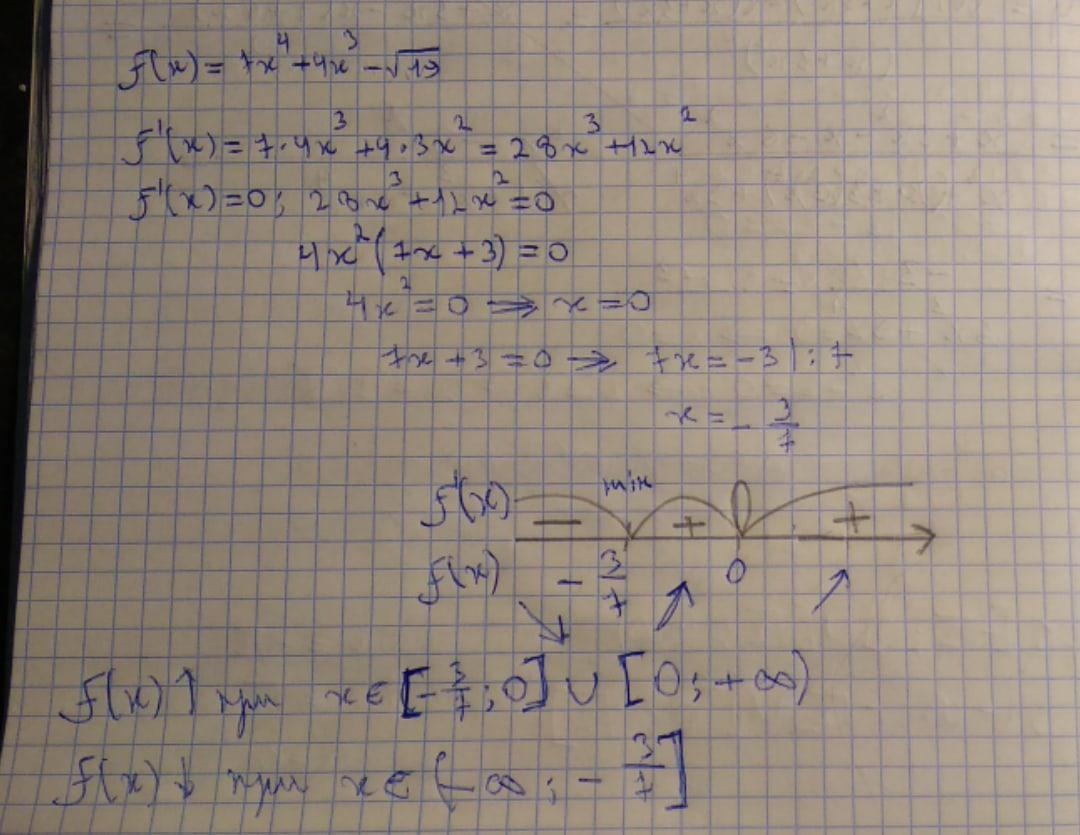 f(x) = 7x⁴ + 4x³ - √19
f'(x) = 7·4x³ + 4·3x² = 28x³ + 12x²
f'(x) = 0; 28x³ + 12x² = 0
4x²(7x + 3) = 0
4x² = 0 ⇒ x = 0
7x + 3 = 0 ⇒ 7x = -3 | : 7
x = - 3/7
min
f'(x) − + +
f(x) - 3/7 0
↘ ↗ ↗
f(x) ↑ при x ∈ [-3/7; 0] ∪ [0; +∞)
f(x) ↓ при x ∈ (-∞; - 3/7]